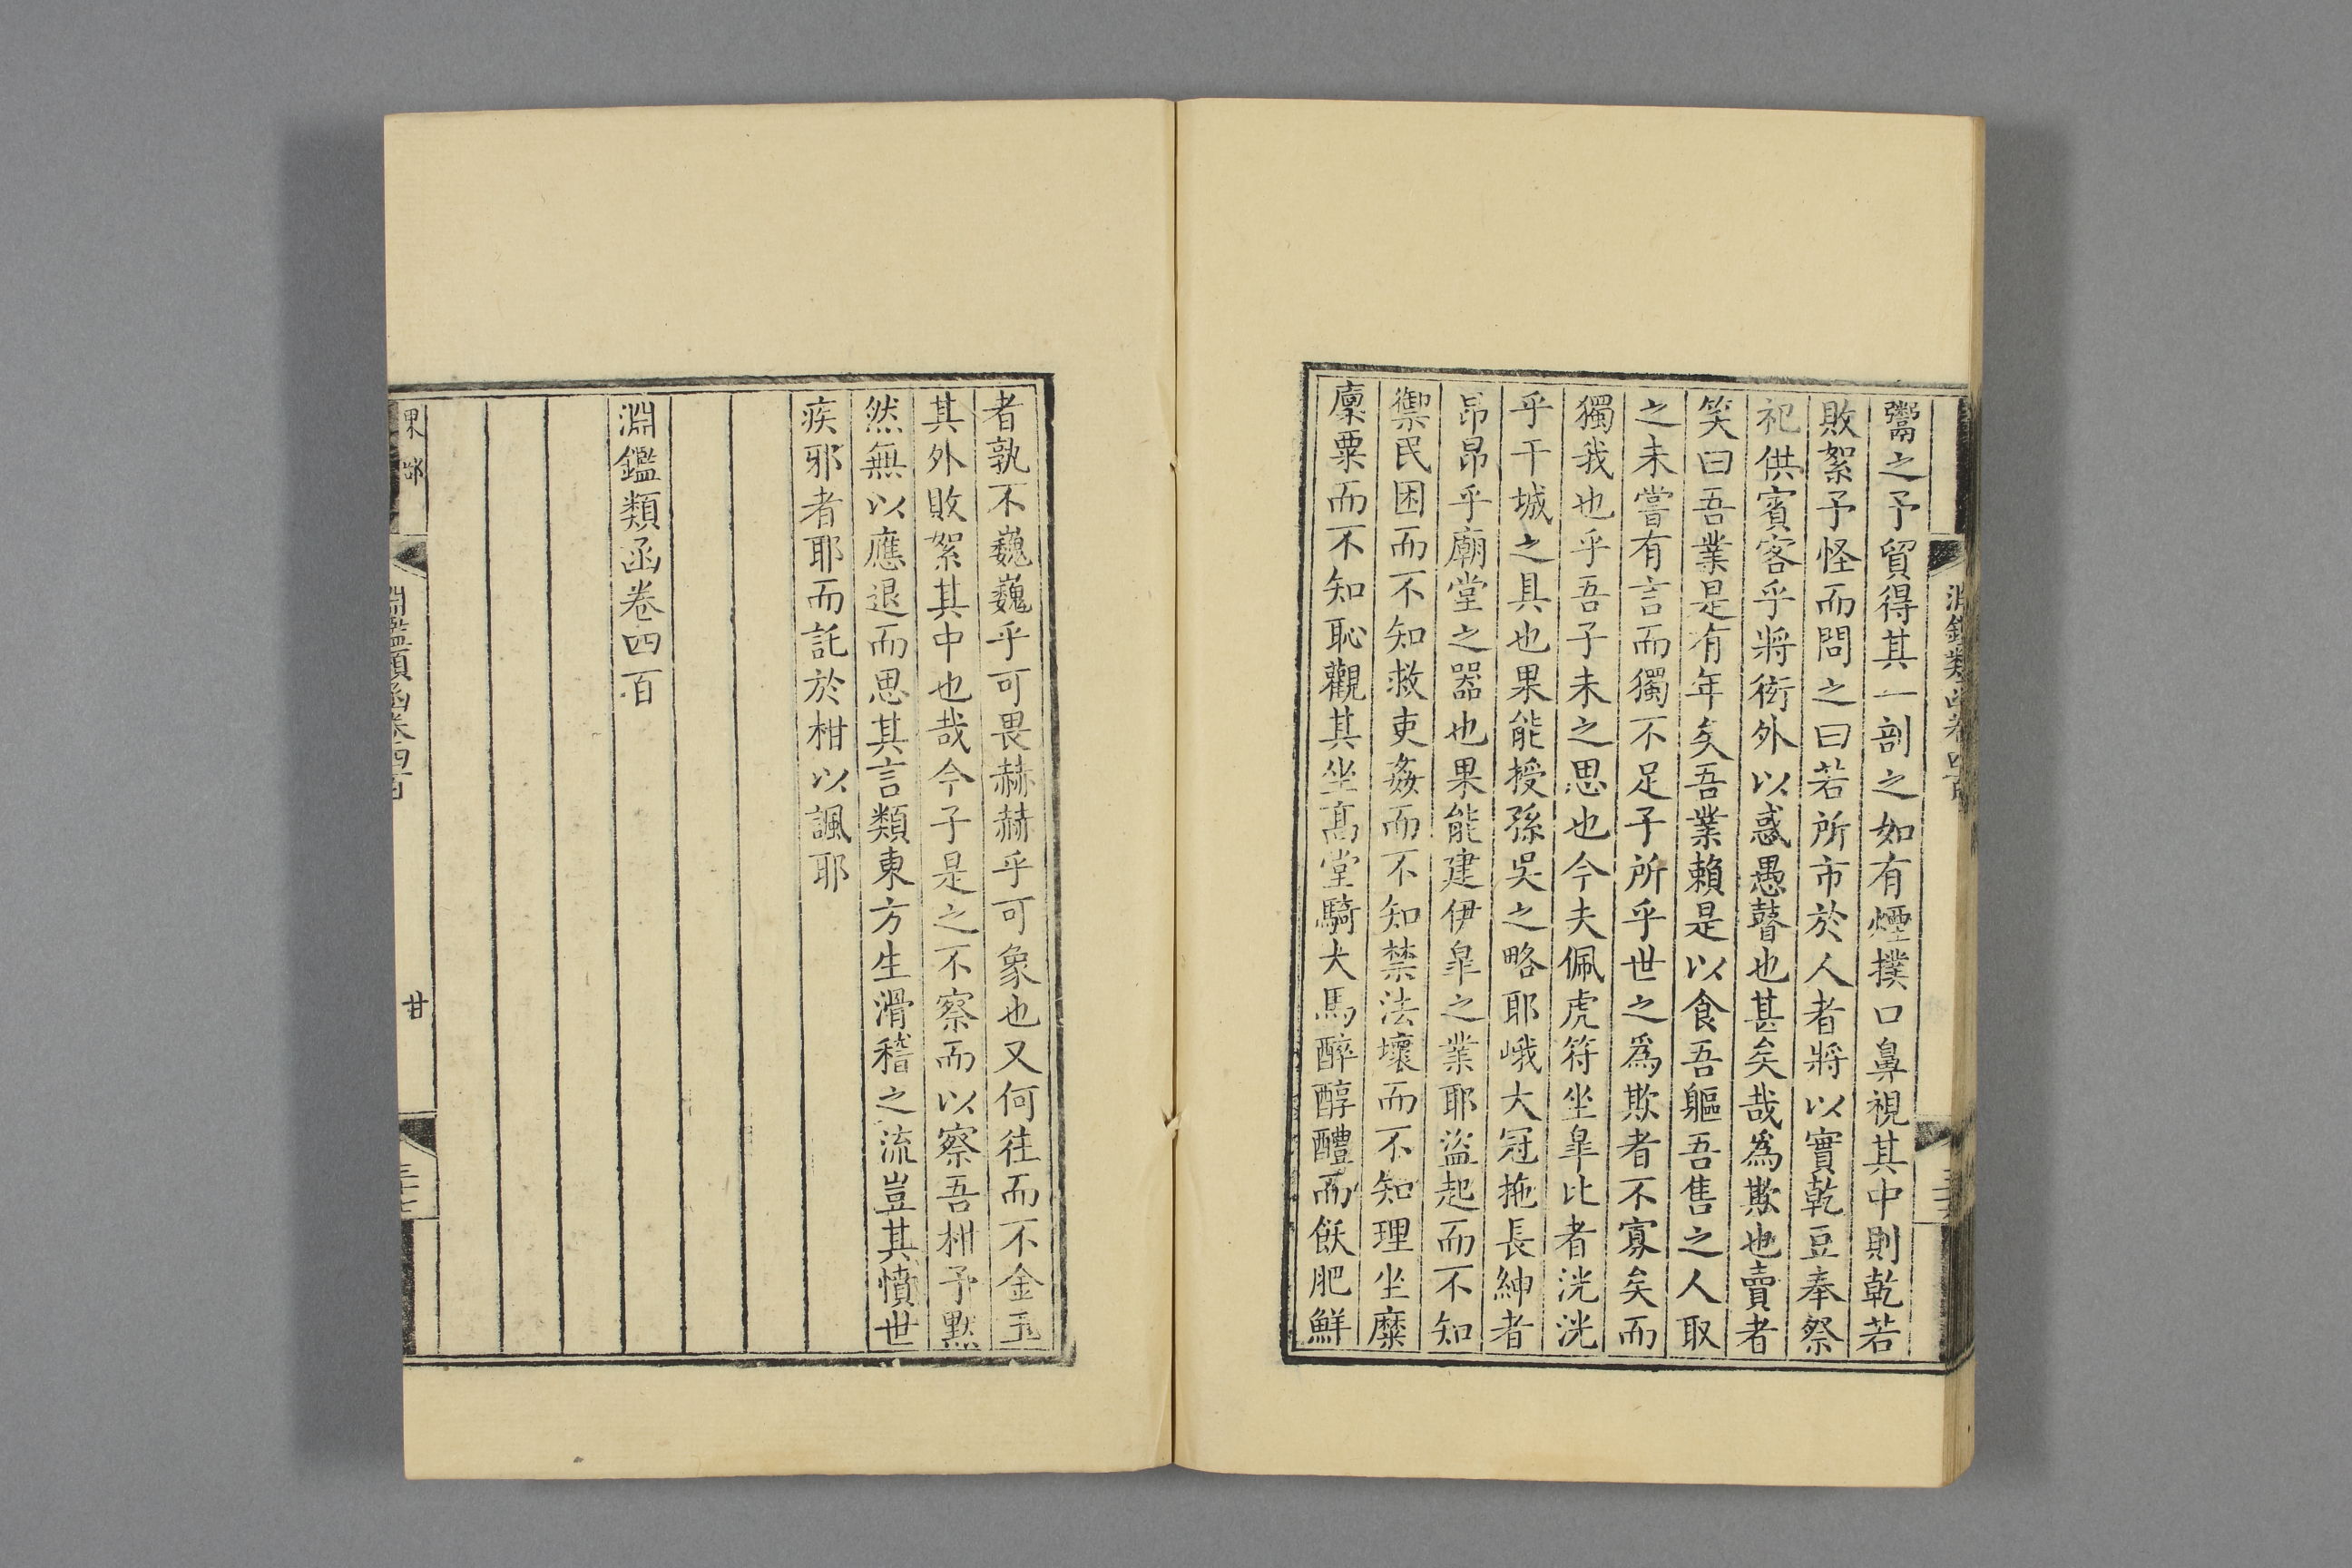 鬻之予貿得其一剖之如有煙撲口鼻視其中則乾若
敗絮予怪而問之曰若所市於人者將以實乾豆奉祭
祀供賓客乎將衒外以惑愚瞽也甚矣哉為欺也賣者
笑曰吾業是有年矣吾業賴是以食吾軀吾售之人取
之未嘗有言而獨不足子所乎世之為欺者不寡矣而
獨我也乎吾子未之思也今夫佩虎符坐皐比者洸洸
乎干城之具也果能授孫吳之略耶峨大冠拖長紳者
昻昻乎廟堂之器也果能建伊皐之業耶盜起而不知
禦民困而不知救吏姦而不知禁法壞而不知理坐糜
廩粟而不知恥觀其坐高堂騎大馬醉醇醴而飫肥鮮
者孰不巍巍乎可畏赫赫乎可象也又何往而不金玉
其外敗絮其中也哉今子是之不察而以察吾柑予默
然無以應退而思其言類東方生滑稽之流豈其憤世
疾邪者耶而託於柑以諷耶
淵鑑類函卷四百
果部
淵鑑類函卷四百
甘